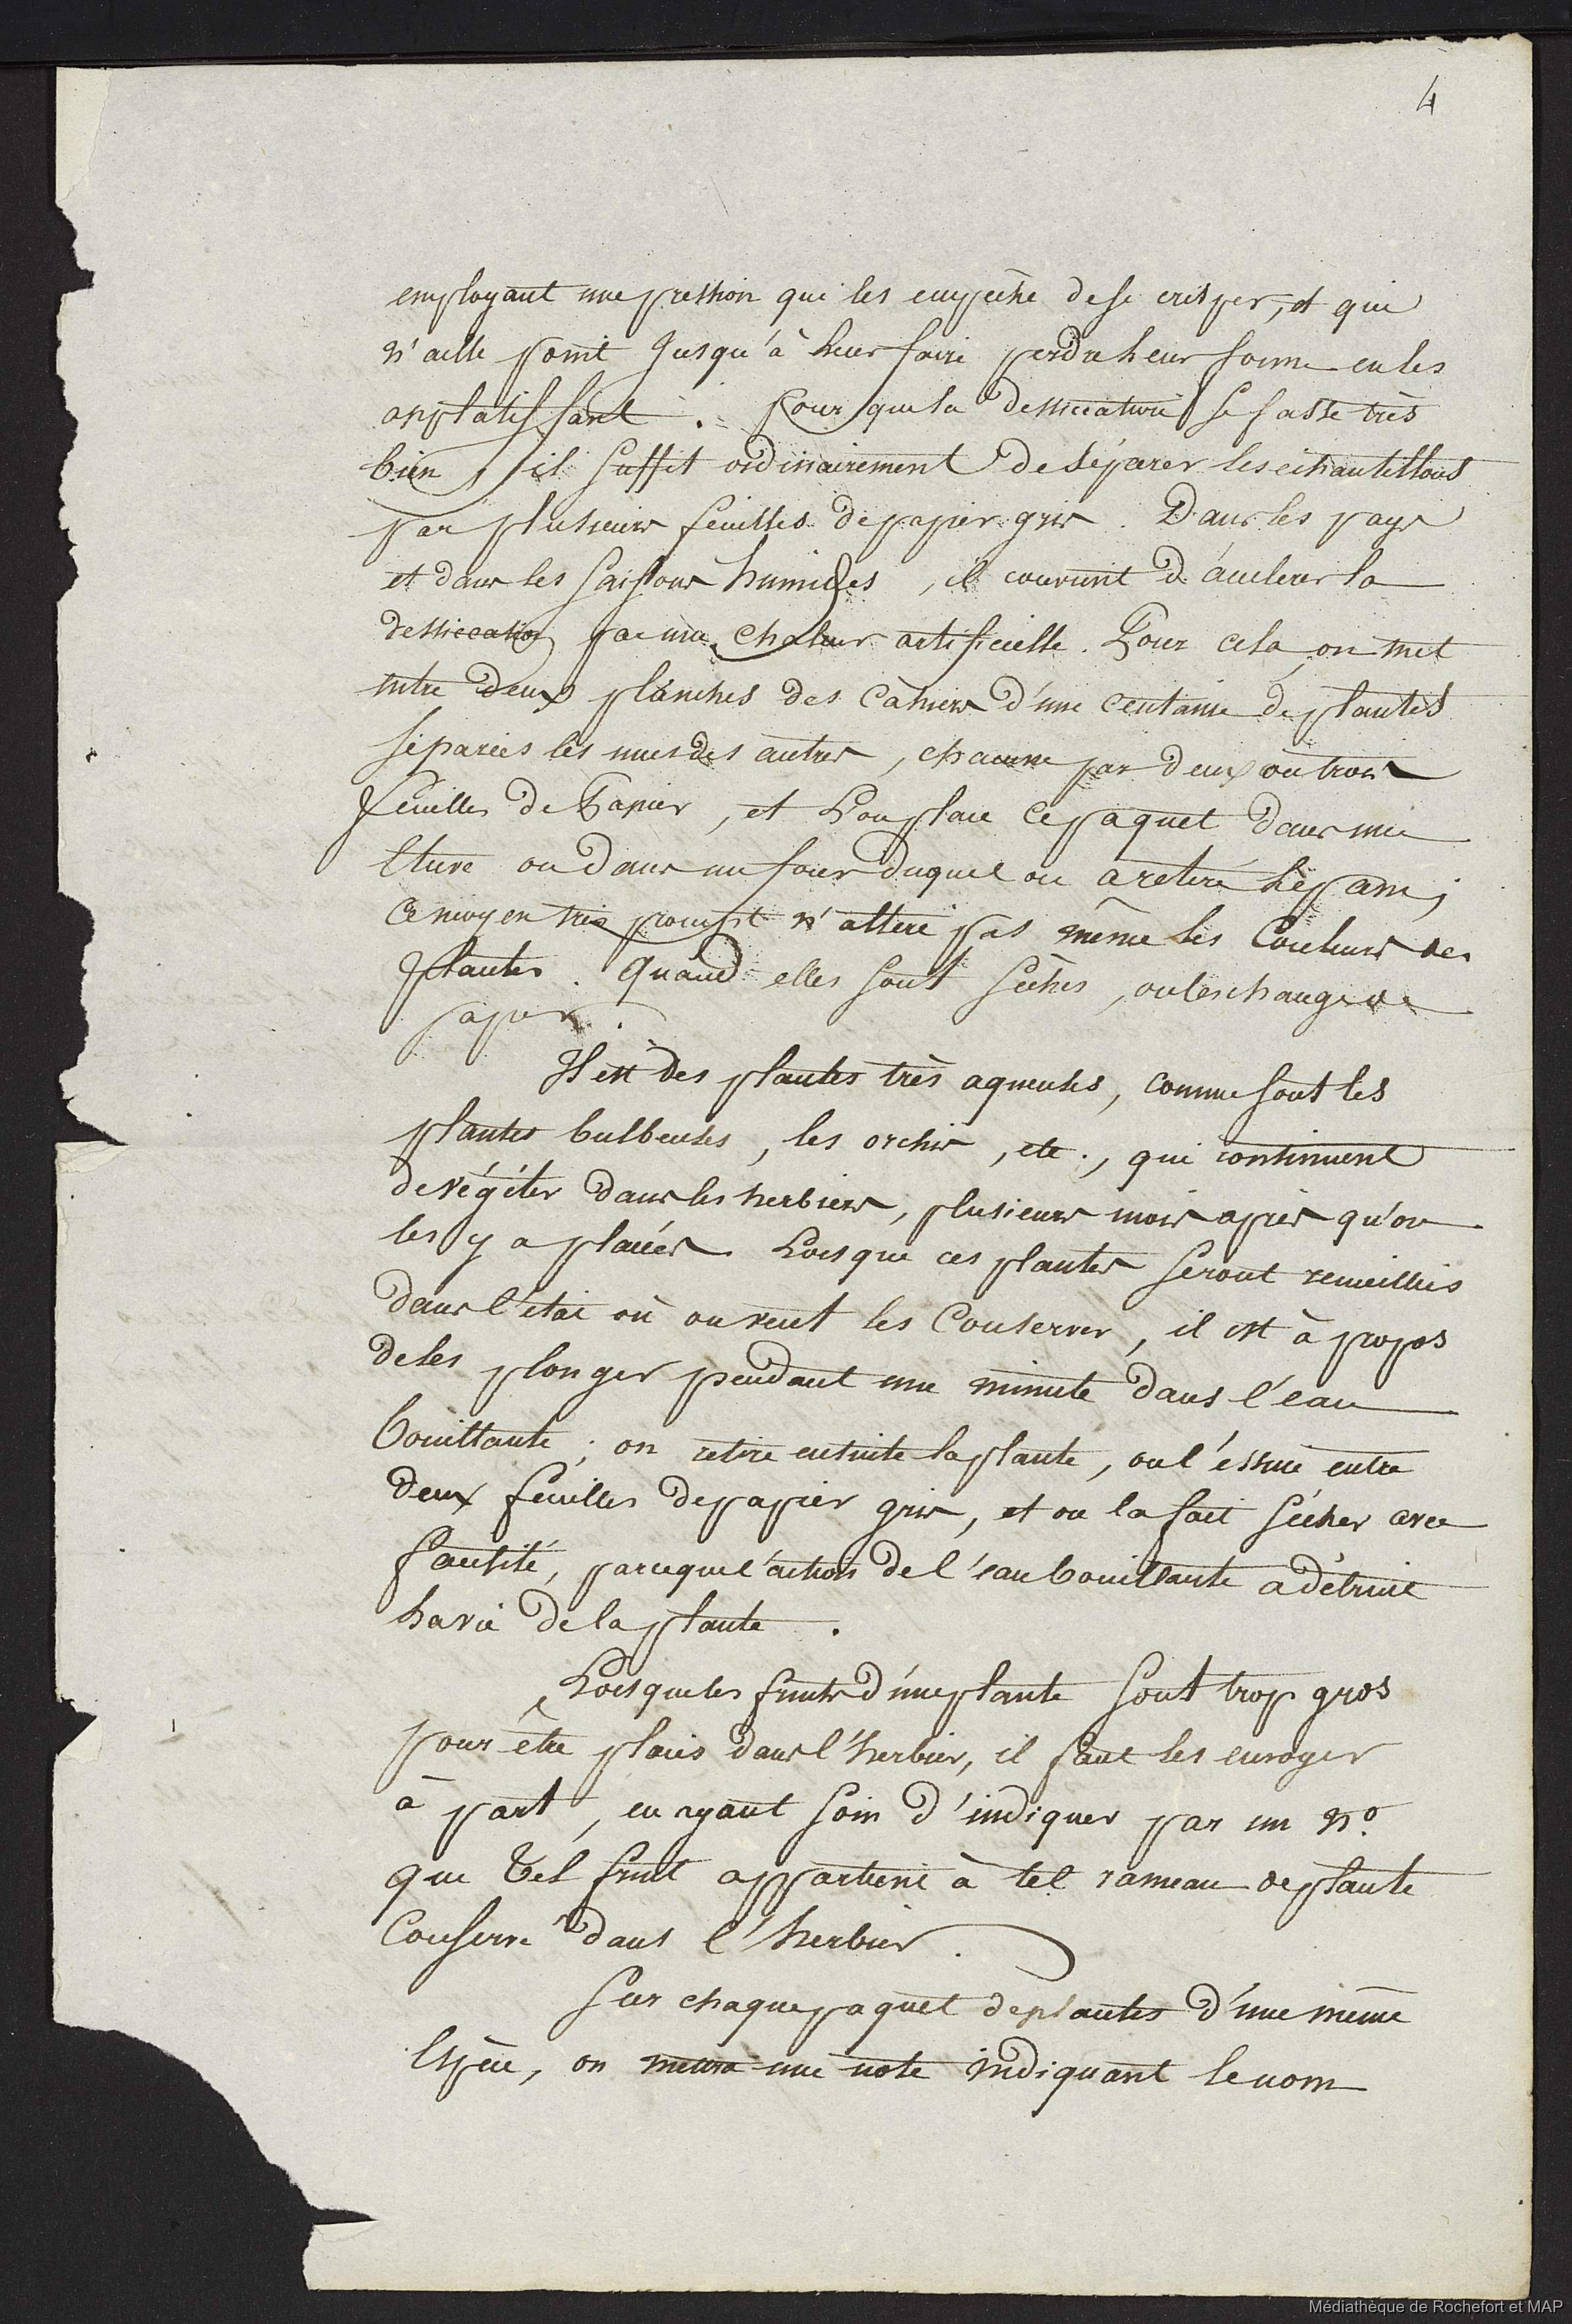 4
employant une pression qui les empèche de se crisper, et qui
n'aille point jusqu'à leur faire perdre leur forme en les
applatissant. Pour que la dessiccation se fasse très
bien, il suffit ordinairement de séparer les echantillons
par plusieurs feuilles de papier gris. Dans les pays
et dans les saisons humides, il convient d'accelerer la
dessiccation par une chaleur artificielle. Pour cela, on met
entre deux planches des Cahiers d'une centaine de plantes
séparées les unes des autres, chacune par deux ou trois
feuilles de Papier, et l'on place ce paquet dans une
étuve ou dans un four duquel on a retiré le pain;
ce moyen très prompt n'altere pas même les Couleurs des
plantes. Quand elles sont séches, on les change de
papier.
Il est des plantes très aqueuses, comme sont les
plantes bulbeuses, les orchis, etc., qui continuent
de végéter dans les herbiers, plusieurs mois après qu'on
les y a placées. Lorsque ces plantes seront recueillies
dans l'état où on veut les Conserver, il est à propos
de les plonger pendant une minute dans l'eau
bouillante; on retire ensuite la plante, on l'essuie entre
deux feuilles de papier gris, et on la fait sécher avec
facilité, parceque l'action de l'eau bouillante a détruit
la vie de la plante.
Lorsque les fruits d'une plante sont trop gros
pour être placés dans l'herbier, il faut les envoyer
à part, en ayant soin d'indiquer par un N°.
que tel fruit appartient à tel rameau de plante
Conservé dans l'herbier.
Sur chaque paquet de plantes d'une même
Espèce, on mettra une note indiquant le nom
Médiathèque de Rochefort et MAP